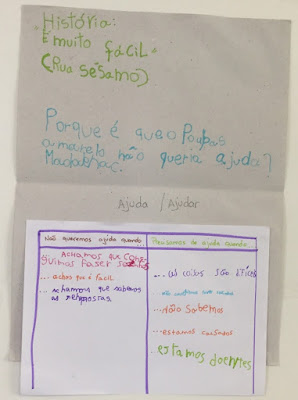 História:
É muito fácil.
(Rua Sésamo)
Porque é que o Poupas
amarelo não queria ajuda?
Ajuda / Ajudar
Não queremos ajuda quando...
Achamos que conse
guimos faser sozinhos
... achas que é facil
... achamos que sabemos
as respostas
Precisamos de ajuda quando...
... as coisas são difíceis
... não sabemos
... estamos cansados
estamos doentes